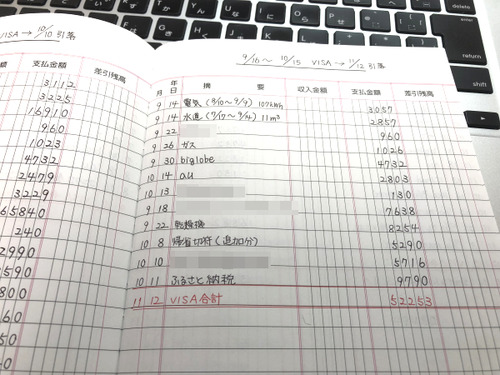 VISA → 10/10 引落
支払金額 差引残高
3112
3225
16910
960
1023
4732
2479
3229
65840
240
2990
3590
800
9/16〜 10/15 VISA → 11/12 引落
年
月 日 摘 要 収入金額 支払金額 差引残高
9 14 電気 107kWh 3057
9 14 水道 11m³ 2857
9 22 960
9 26 ガス 1026
9 30 biglobe 4732
10 14 au 2803
10 13 130
9 18 7638
9 22 乾燥機 8254
10 8 帰省切符(追加分) 5290
10 10 5716
10 11 ふるさと納税 9790
11 12 VISA合計 52253